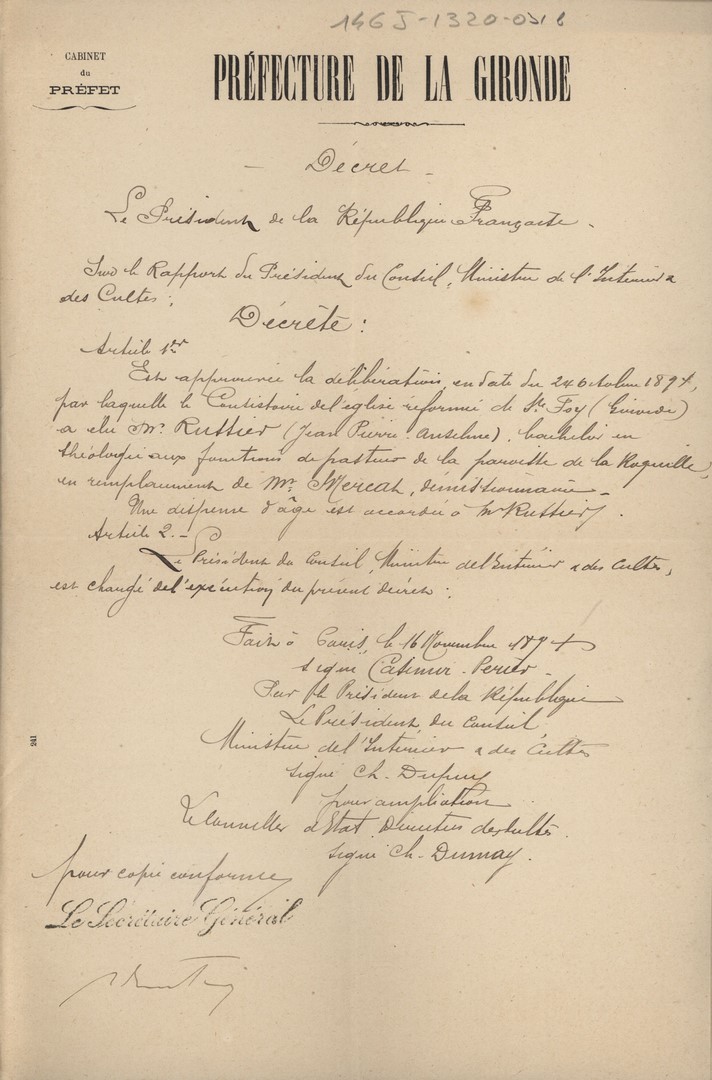 146 J-1320-031 b
CABINET
du
PRÉFET
PRÉFECTURE DE LA GIRONDE
Décret
Le Président de la République Française
Sur le Rapport du Président du Conseil, Ministre de l'Intérieur &
des Cultes;
Décrète :
Article 1er
Est approuvée la délibération, en date du 24 Octobre 1894,
par laquelle le Consistoire de l'église réformée de Ste Foy (Gironde)
a élu Mr. Russier (Jean Pierre Anselme), bachelier en
théologie aux fonctions de pasteur de la paroisse de la Roquille,
en remplacement de Mr. Mercat, démissionnaire -
Une dispense d'âge est accordée à Mr Russier.
Article 2. -
Le Président du Conseil, Ministre de l'Intérieur & des Cultes,
est chargé de l'exécution du présent décret :
Fait à Paris, le 16 Novembre 1894
signé Casimir-Perier -
Par le Président de la République
Le Président du Conseil
Ministre de l'Intérieur & des Cultes
signé Ch. Dupuy
pour ampliation
Le Conseiller d'Etat, Directeur des Cultes.
signé Ch. Dumay.
pour copie conforme
Le Secrétaire Général
241